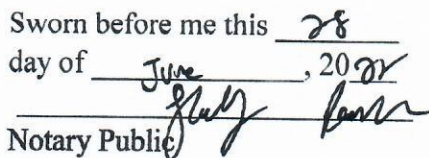 Sworn before me this 28
day of June, 2022
Notary Public